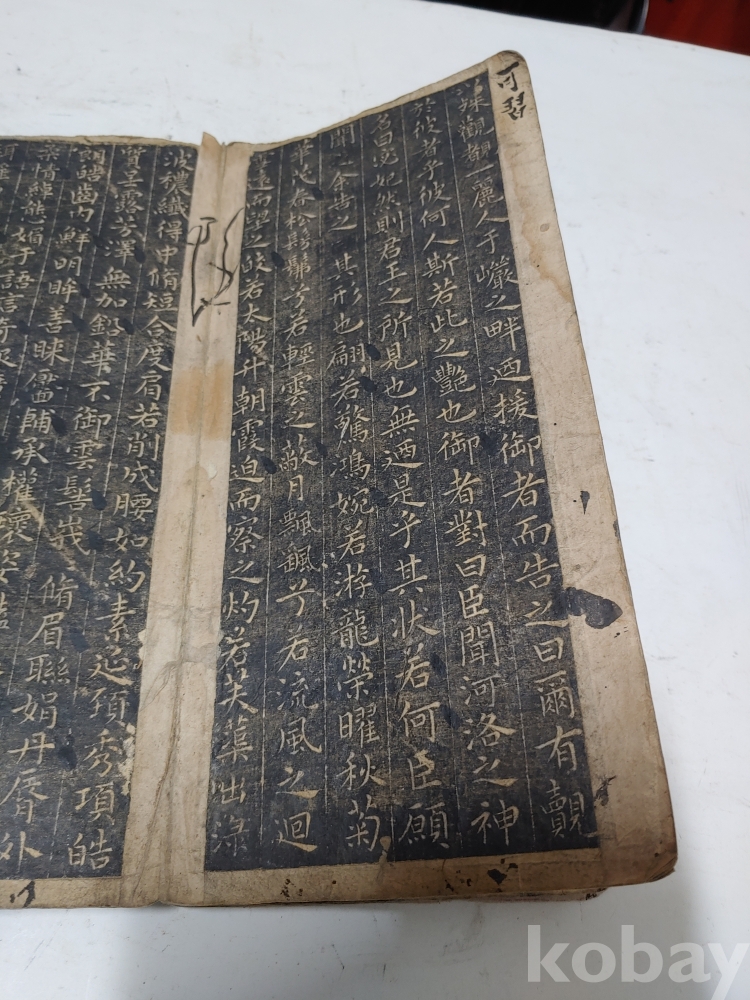 可習
以殊觀覩一麗人于巖之畔迺援御者而告之曰爾有覿
於彼者乎彼何人斯若此之豔也御者對曰臣聞河洛之神
名曰宓妃然則君王之所見也無迺是乎其狀若何臣願
聞之余告之其形也翩若驚鴻婉若游龍榮曜秋菊
華茂春松髣髴兮若輕雲之蔽月飄颻兮若流風之迴
遠而望之皎若太陽升朝霞迫而察之灼若芙蕖出淥
波穠纖得中脩短合度肩若削成腰如約素延頸秀項皓
質呈露芳澤無加鉛華不御雲髻峩脩眉聯娟丹脣外
朗皓齒內鮮明眸善睞靨輔承權瓌姿
柔情綽態媚于語言奇
kobay